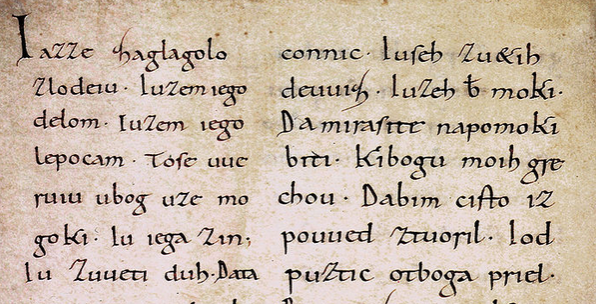 Iazze zaglagolo
zlodeiu· Iuzem iego
delom· Iuzem iego
lepocam· Tose uue
ruiu ubog uze mo
goki· Iu iega zin;
Iu zuueti duh· Data
connic· Iuseh zu&ih
deuuiz· Iuzeh b̄ moki·
Da mirasite napomoki
biti· Kibogu moih gre
chou· Dabim cisto iz
pouued ztuoril· Iod
puztic otboga priel·